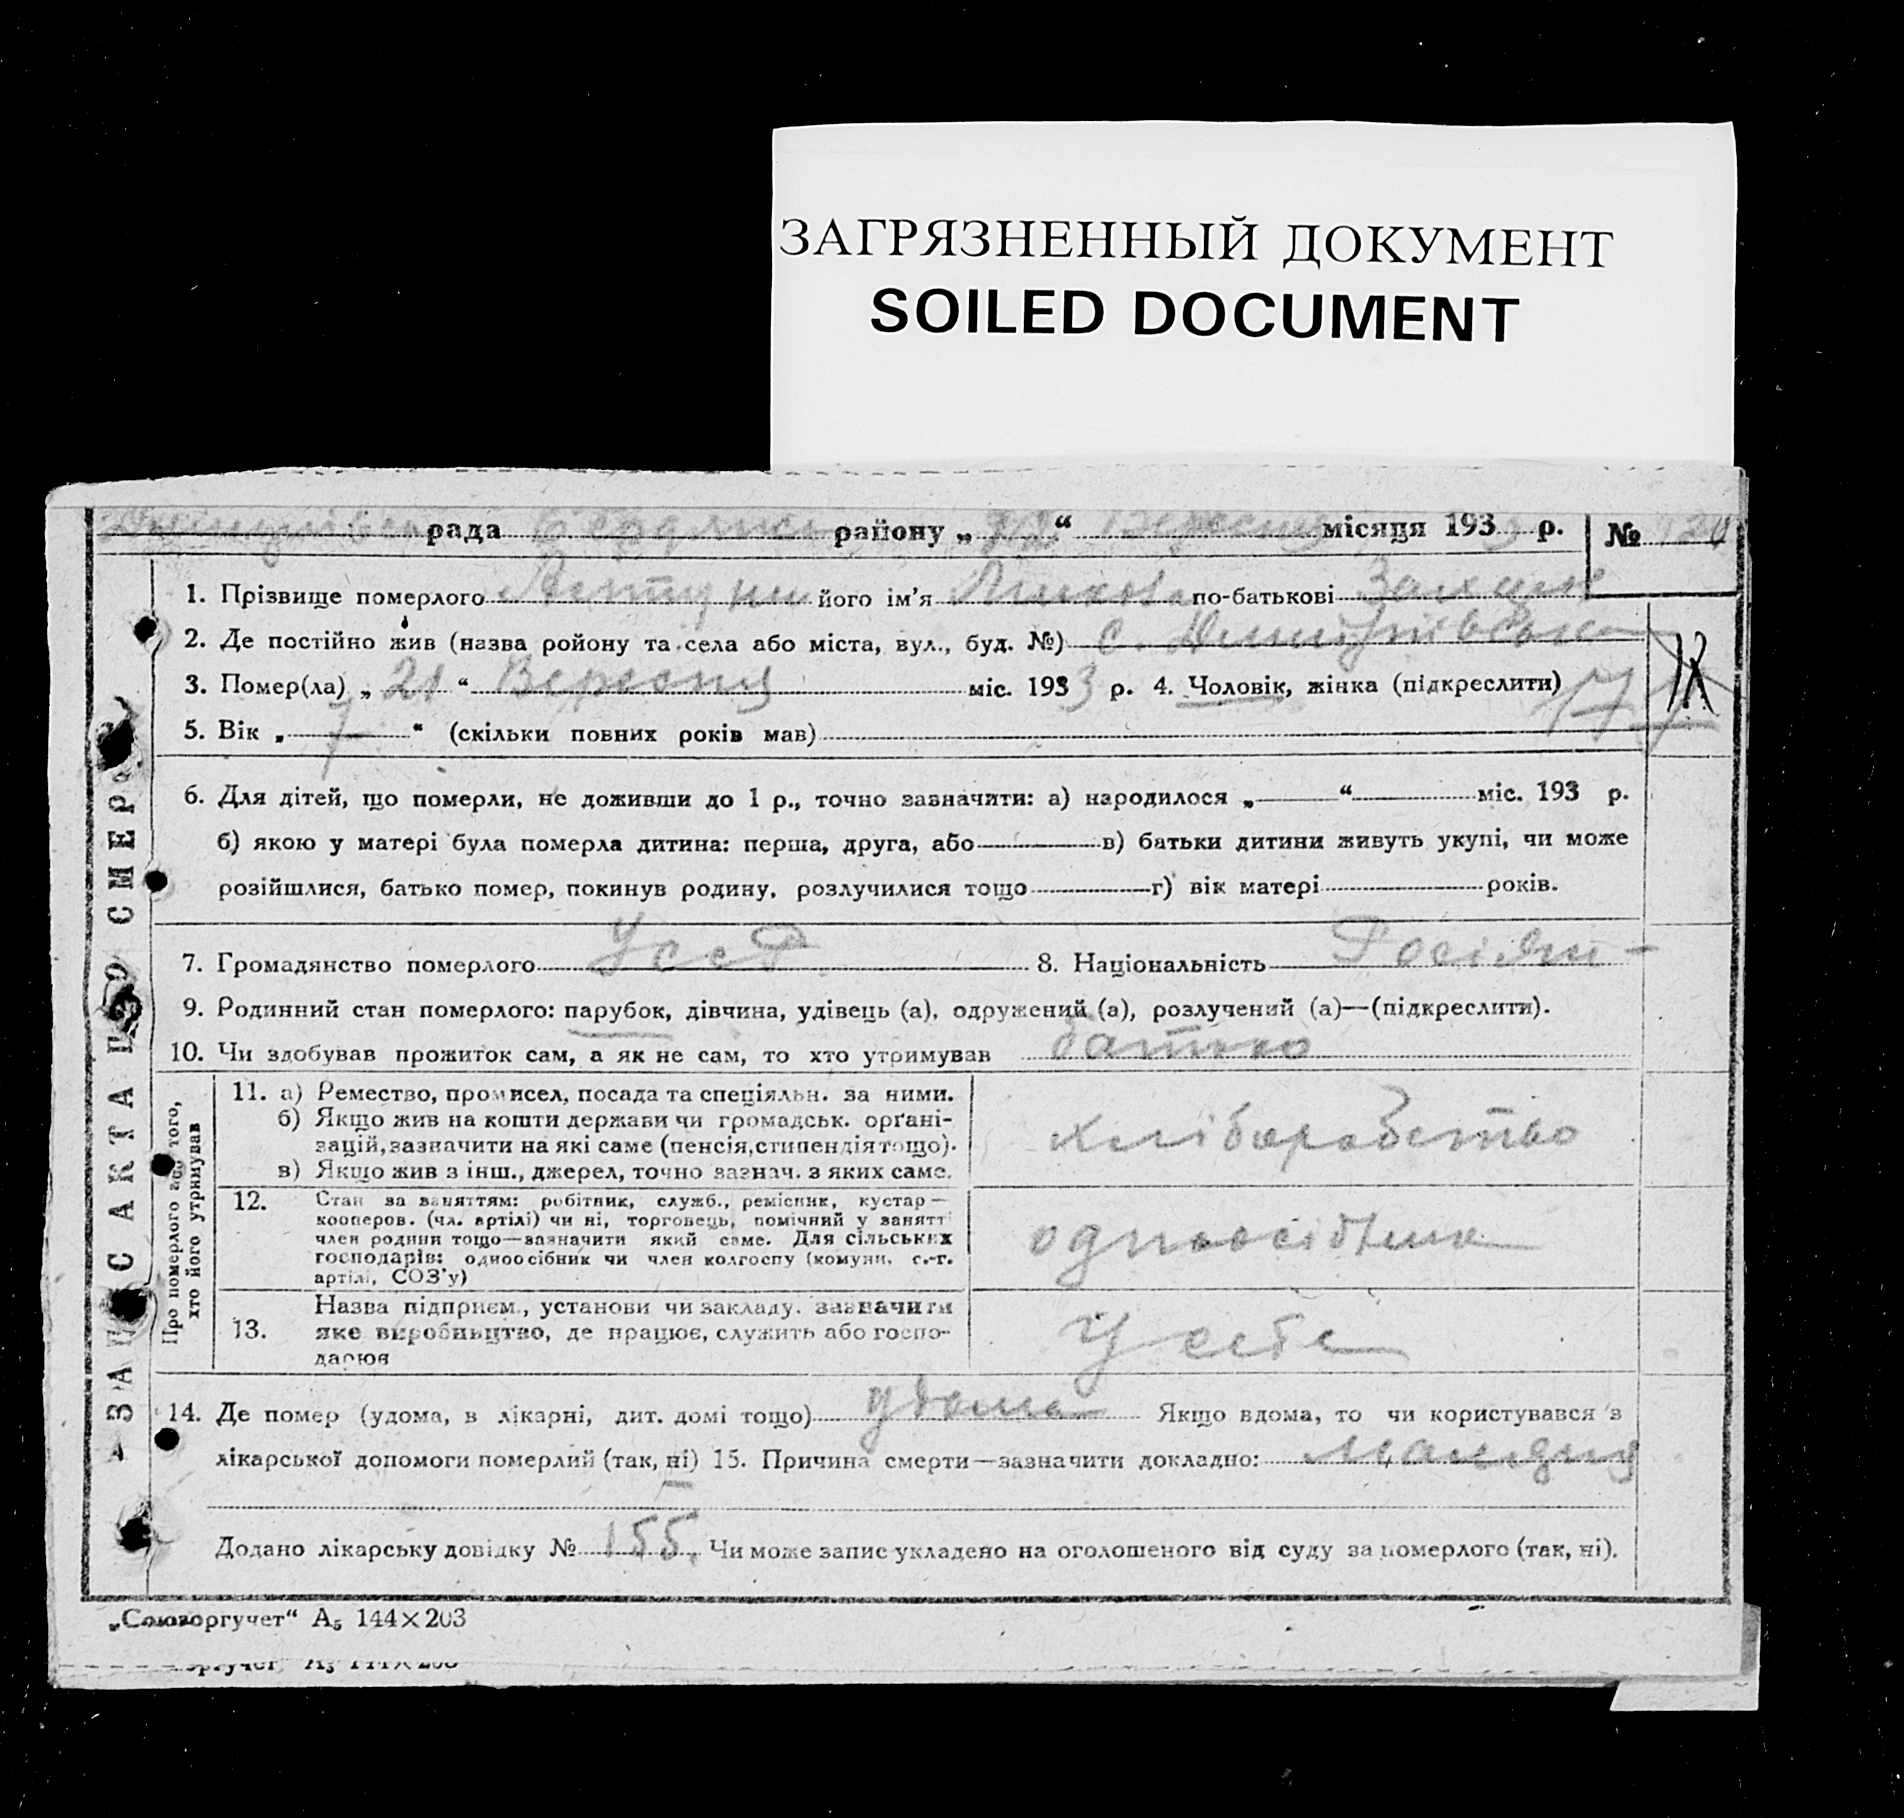 ЗАГРЯЗНЕННЫЙ ДОКУМЕНТ
SOILED DOCUMENT
рада району „22“ Вересня місяця 1933 р. №
1. Прізвище померлого його ім'я по-батькові
2. Де постійно жив (назва ройону та села або міста, вул., буд. №) с.
3. Помер(ла) „21“ Вересня міс. 1933 р. 4. Чоловік, жінка (підкреслити)
5. Вік „7“ (скільки повних років мав)
6. Для дітей, що померли, не доживши до 1 р., точно зазначити: а) народилося „ “ міс. 193 р.
б) якою у матері була померла дитина: перша, друга, або в) батьки дитини живуть укупі, чи може
розійшлися, батько помер, покинув родину, розлучилися тощо г) вік матері років.
7. Громадянство померлого Усср 8. Національність Росіян-
9. Родинний стан померлого: парубок, дівчина, удівець (а), одружений (а), розлучений (а)—(підкреслити).
10. Чи здобував прожиток сам, а як не сам, то хто утримував батько
Про померлого або того,
хто його утримував
11. а) Ремество, промисел, посада та спеціяльн. за ними.
б) Якщо жив на кошти держави чи громадськ. орґані-
зацій, зазначити на які саме (пенсія, стипендія тощо).
в) Якщо жив з інш., джерел, точно зазнач. з яких саме.
хліборобство
12. Стан за заняттям: робітник, служб., ремісник, кустар—
кооперов. (чл. артілі) чи ні, торговець, помічний у занятті
член родини тощо—зазначити який саме. Для сільських
господарів: одноосібник чи член колгоспу (комуни, с.-г.
артілі, СОЗ'у)
одноосібник
13. Назва підприєм., установи чи закладу. зазначити
яке виробництво, де працює, служить або госпо-
дарює
У себе
14. Де помер (удома, в лікарні, дит. домі тощо) удома Якщо вдома, то чи користувався з
лікарської допомоги померлий (так, ні) 15. Причина смерти—зазначити докладно: Малярия
Додано лікарську довідку № 155. Чи може запис укладено на оголошеного від суду за померлого (так, ні).
ЗАПИС АКТА ПРО СМЕРТЬ
„Союзоргучет“ А₅ 144×203